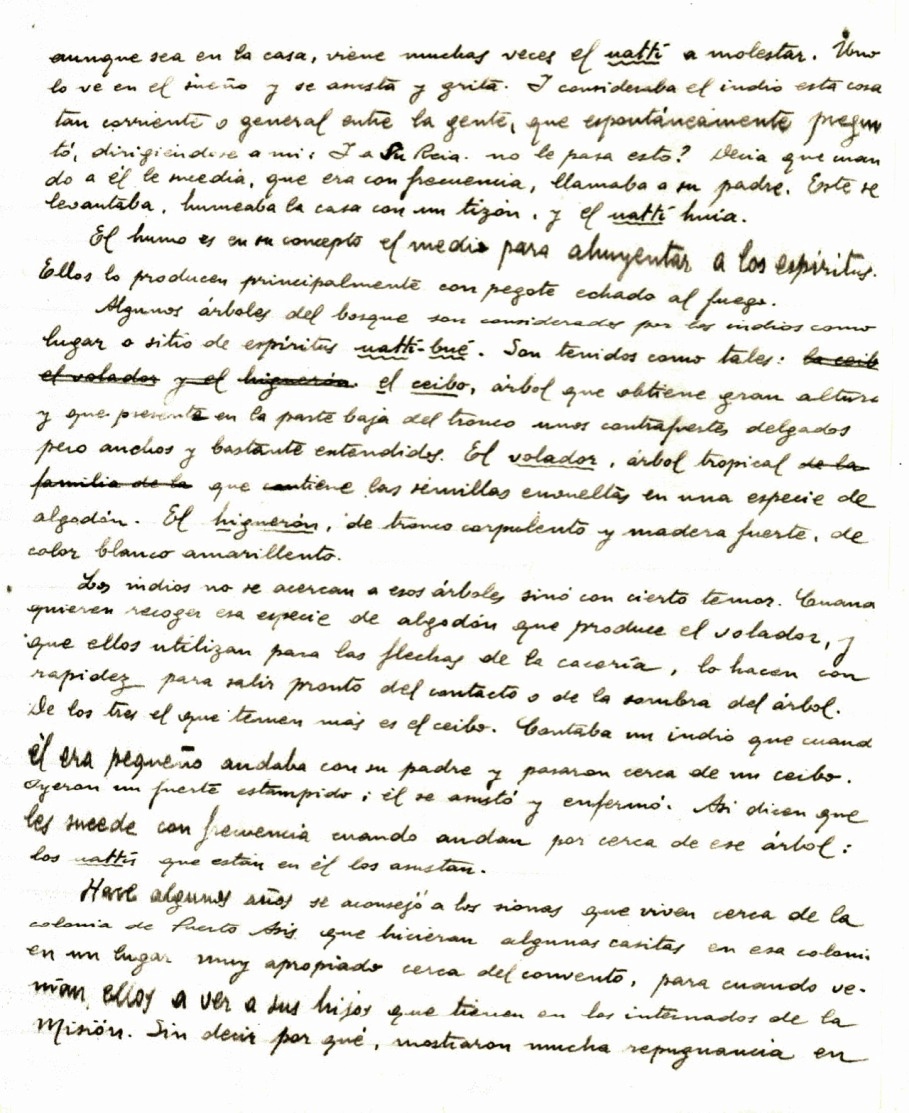 aunque sea en la casa, viene muchas veces el uattí a molestar. Uno
lo ve en el sueño y se asusta y grita. I consideraba el indio esta cosa
tan corriente o general entre la gente, que espontáneamente pregun
tó, dirigiéndose a mi: I a Su Rcia. no le pasa esto? Decia que cuan
do a él le sucedia, que era con frecuencia, llamaba a su padre. Este se
levantaba, humeaba la casa con un tizón, y el uattí huía.
El humo es en su concepto el medio para ahuyentar a los espíritus.
Ellos lo producen principalmente con pegote echado al fuego.
Algunos árboles del bosque son considerados por los indios como
lugar o sitio de espíritus uattí-bué. Son tenidos como tales: la ceib
el volador y el higuerón. el ceibo, árbol que obtiene gran altura
y que presenta en la parte baja del tronco unos contrafuertes delgados
pero anchos y bastante extendidos. El volador, árbol tropical de la
familia de la que contiene las semillas envueltas en una especie de
algodón. El higuerón, de tronco corpulento y madera fuerte, de
color blanco amarillento.
Los indios no se acercan a esos árboles sinó con cierto temor. Cuand
quieren recoger esa especie de algodón que produce el volador, y
que ellos utilizan para las flechas de la cacería, lo hacen con
rapidez para salir pronto del contacto o de la sombra del árbol.
De los tres el que temen más es el ceibo. Contaba un indio que cuand
él era pequeño andaba con su padre y pasaron cerca de un ceibo.
Oyeron un fuerte estampido; él se asustó y enfermó. Asi dicen que
les sucede con frecuencia cuando andan por cerca de ese árbol:
los uattís que están en él los asustan.
Hace algunos años se aconsejó a los sionas que viven cerca de la
colonia de Puerto Asis que hicieran algunas casitas en esa coloni
en un lugar muy apropiado cerca del convento, para cuando ve-
nían ellos a ver a sus hijos que tienen en los internados de la
Misión. Sin decir por qué, mostraron mucha repugnancia en